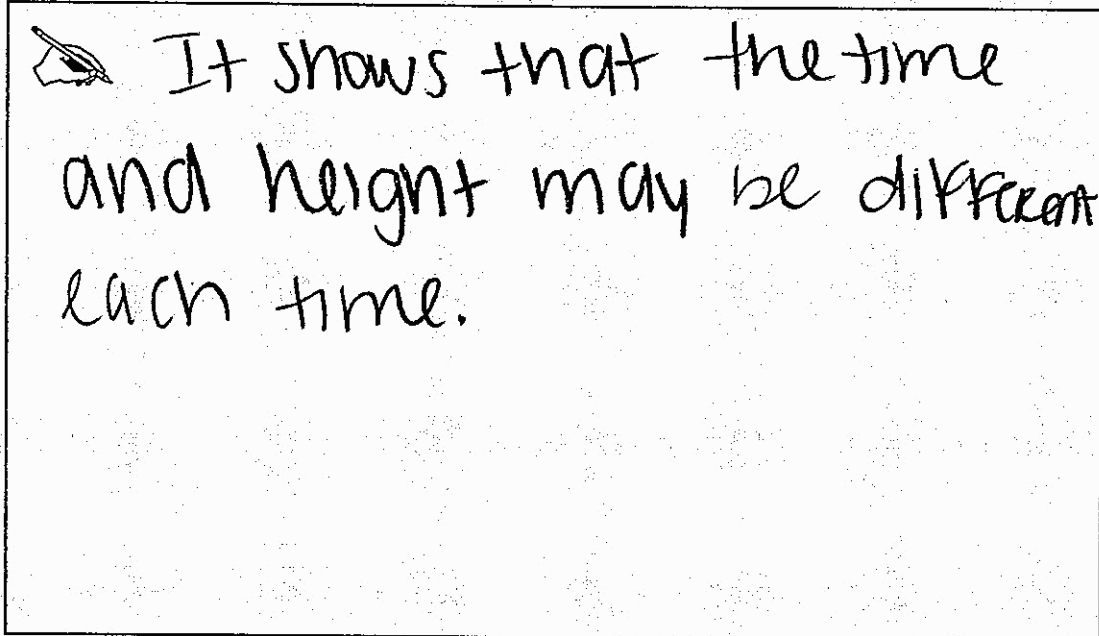 It shows that the time
and height may be different
each time.